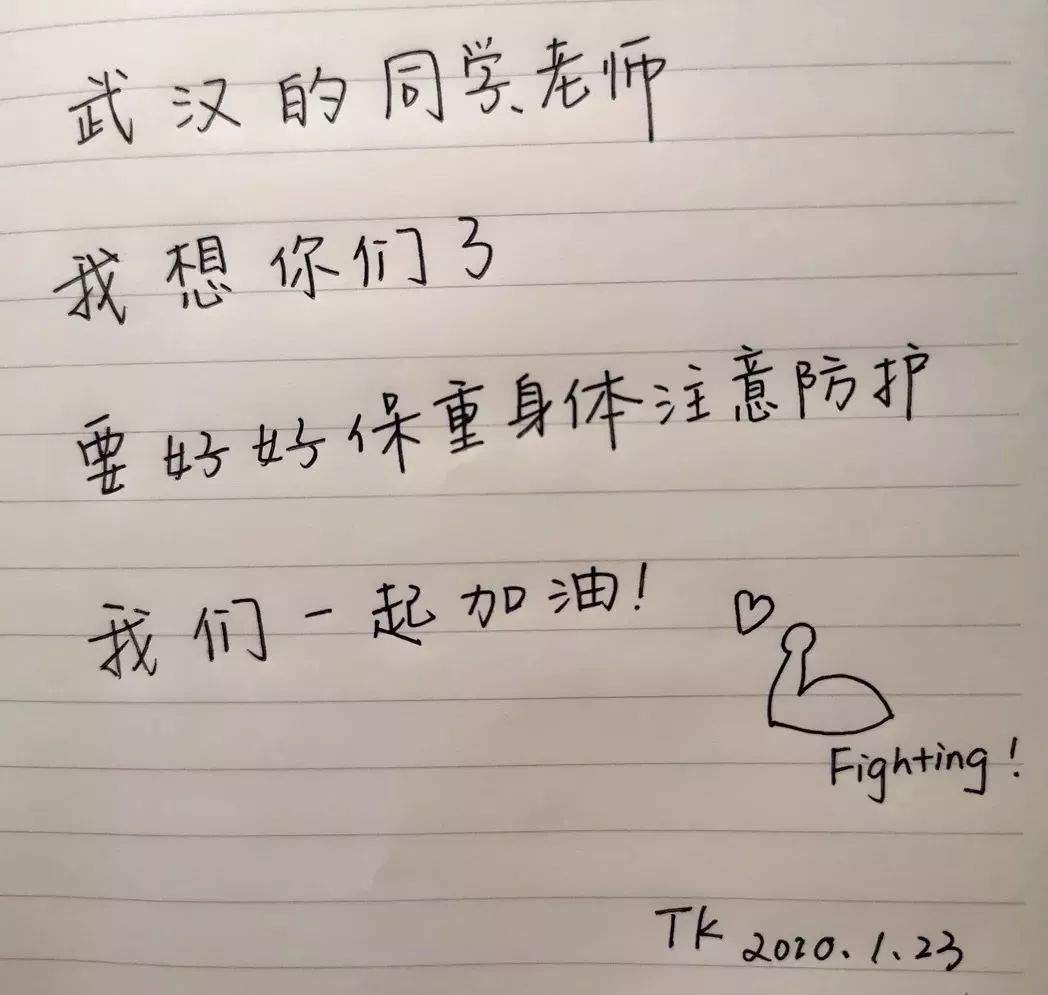 武汉的同学、老师
我想你们了
要好好保重身体注意防护
我们一起加油!
Fighting!
TK 2020.1.23